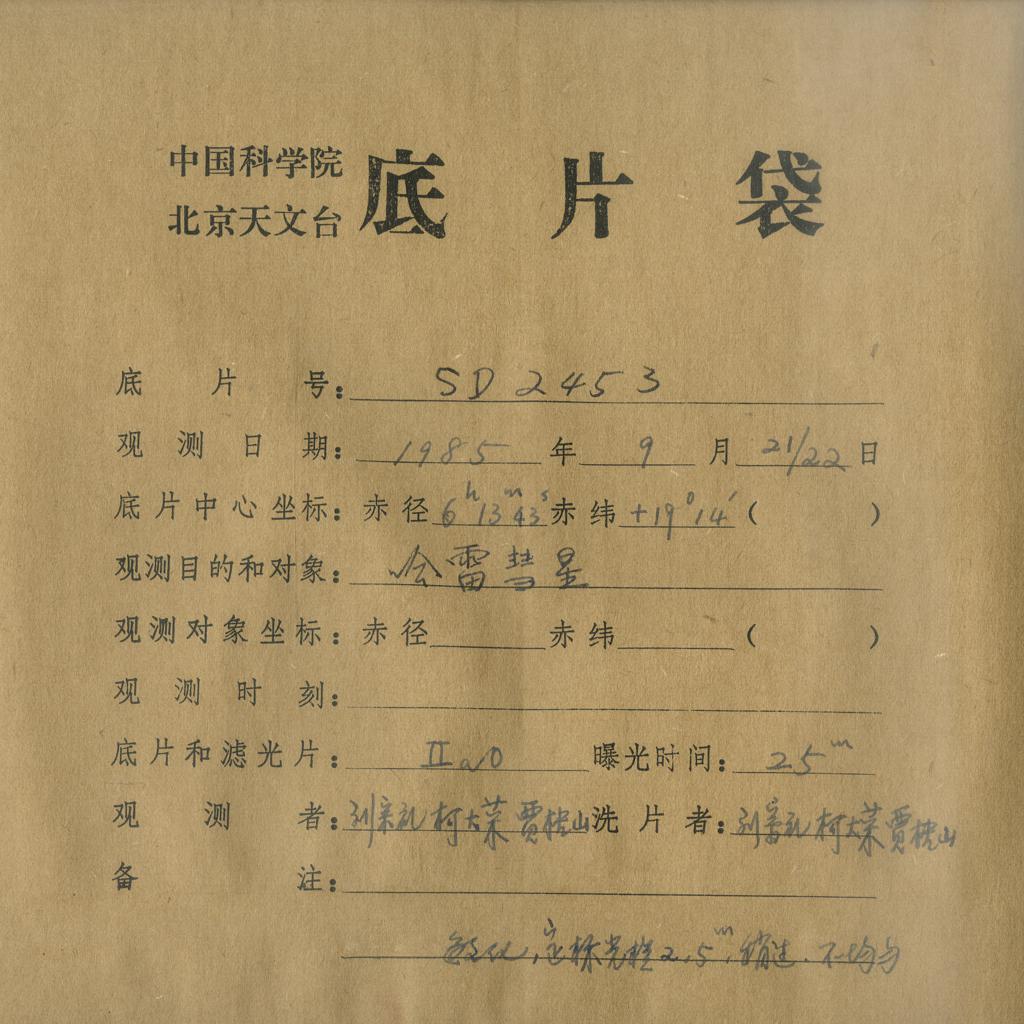 中国科学院
北京天文台
底片袋
底片号：SD2453
观测日期：1985年9月21/22日
底片中心坐标：赤径6h13m43s赤纬+19°14′（ ）
观测目的和对象：哈雷彗星
观测对象坐标：赤径 赤纬 （ ）
观测时刻：
底片和滤光片：IIaO 曝光时间：25m
观测者：柯大荣 贾 山 洗片者：柯大荣 贾 山
备注：
敏化，定标 2.5m，不均匀